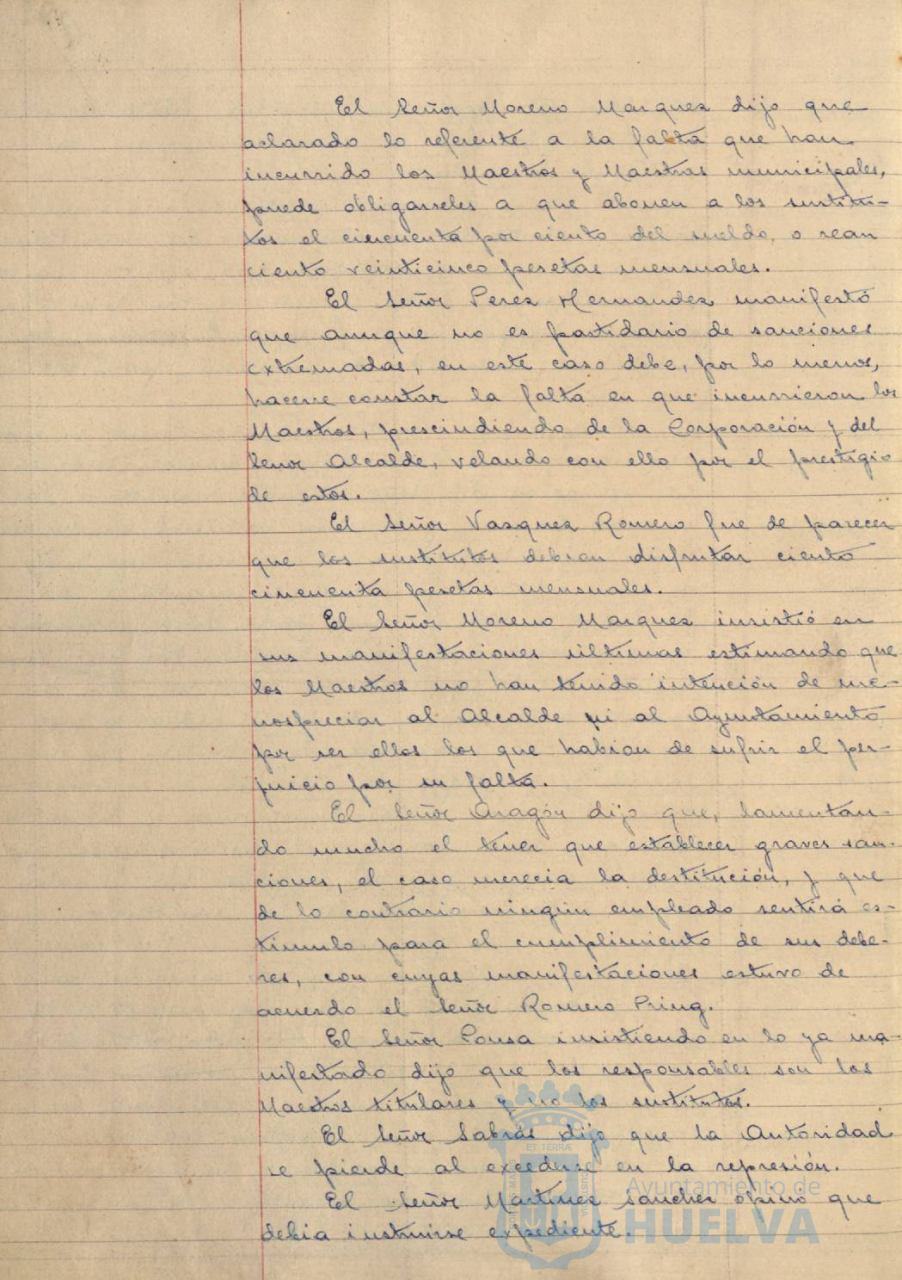 El Señor Moreno Marquez dijo que
aclarado lo referente a la falta que han
incurrido los Maestros y Maestras municipales,
puede obligarseles a que abonen a los sustitu-
tos el cincuenta por ciento del sueldo, o sean
ciento veinticinco pesetas mensuales.
El Señor Perez Hernandez manifestó
que aunque no es partidario de sanciones
extremadas, en este caso debe, por lo menos,
hacerse constar la falta en que incurrieron los
Maestros, prescindiendo de la Corporación y del
Señor Alcalde, velando con ello por el prestigio
de estos.
El Señor Vasquez Romero fue de parecer
que los sustitutos debian disfrutar ciento
cincuenta pesetas mensuales.
El Señor Moreno Marquez insistió en
sus manifestaciones ultimas estimando que
los Maestros no han tenido intención de me-
nospreciar al Alcalde ni al Ayuntamiento
por ser ellos los que habian de sufrir el per-
juicio por su falta.
El Señor Aragón dijo que, lamentan-
do mucho el tener que establecer graves san-
ciones, el caso merecia la destitución, y que
de lo contrario ningún empleado sentirá es-
timulo para el cumplimiento de sus debe-
res, con cuyas manifestaciones estuvo de
acuerdo el Señor Romero Pring.
El Señor Pousa insistiendo en lo ya ma-
nifestado dijo que los responsables son los
Maestros titulares y no los sustitutos.
El Señor Sabrás dijo que la Autoridad
se pierde al excederse en la represión.
El Señor Martinez Sanchez opinó que
debia instruirse expediente.
Ayuntamiento de
HUELVA